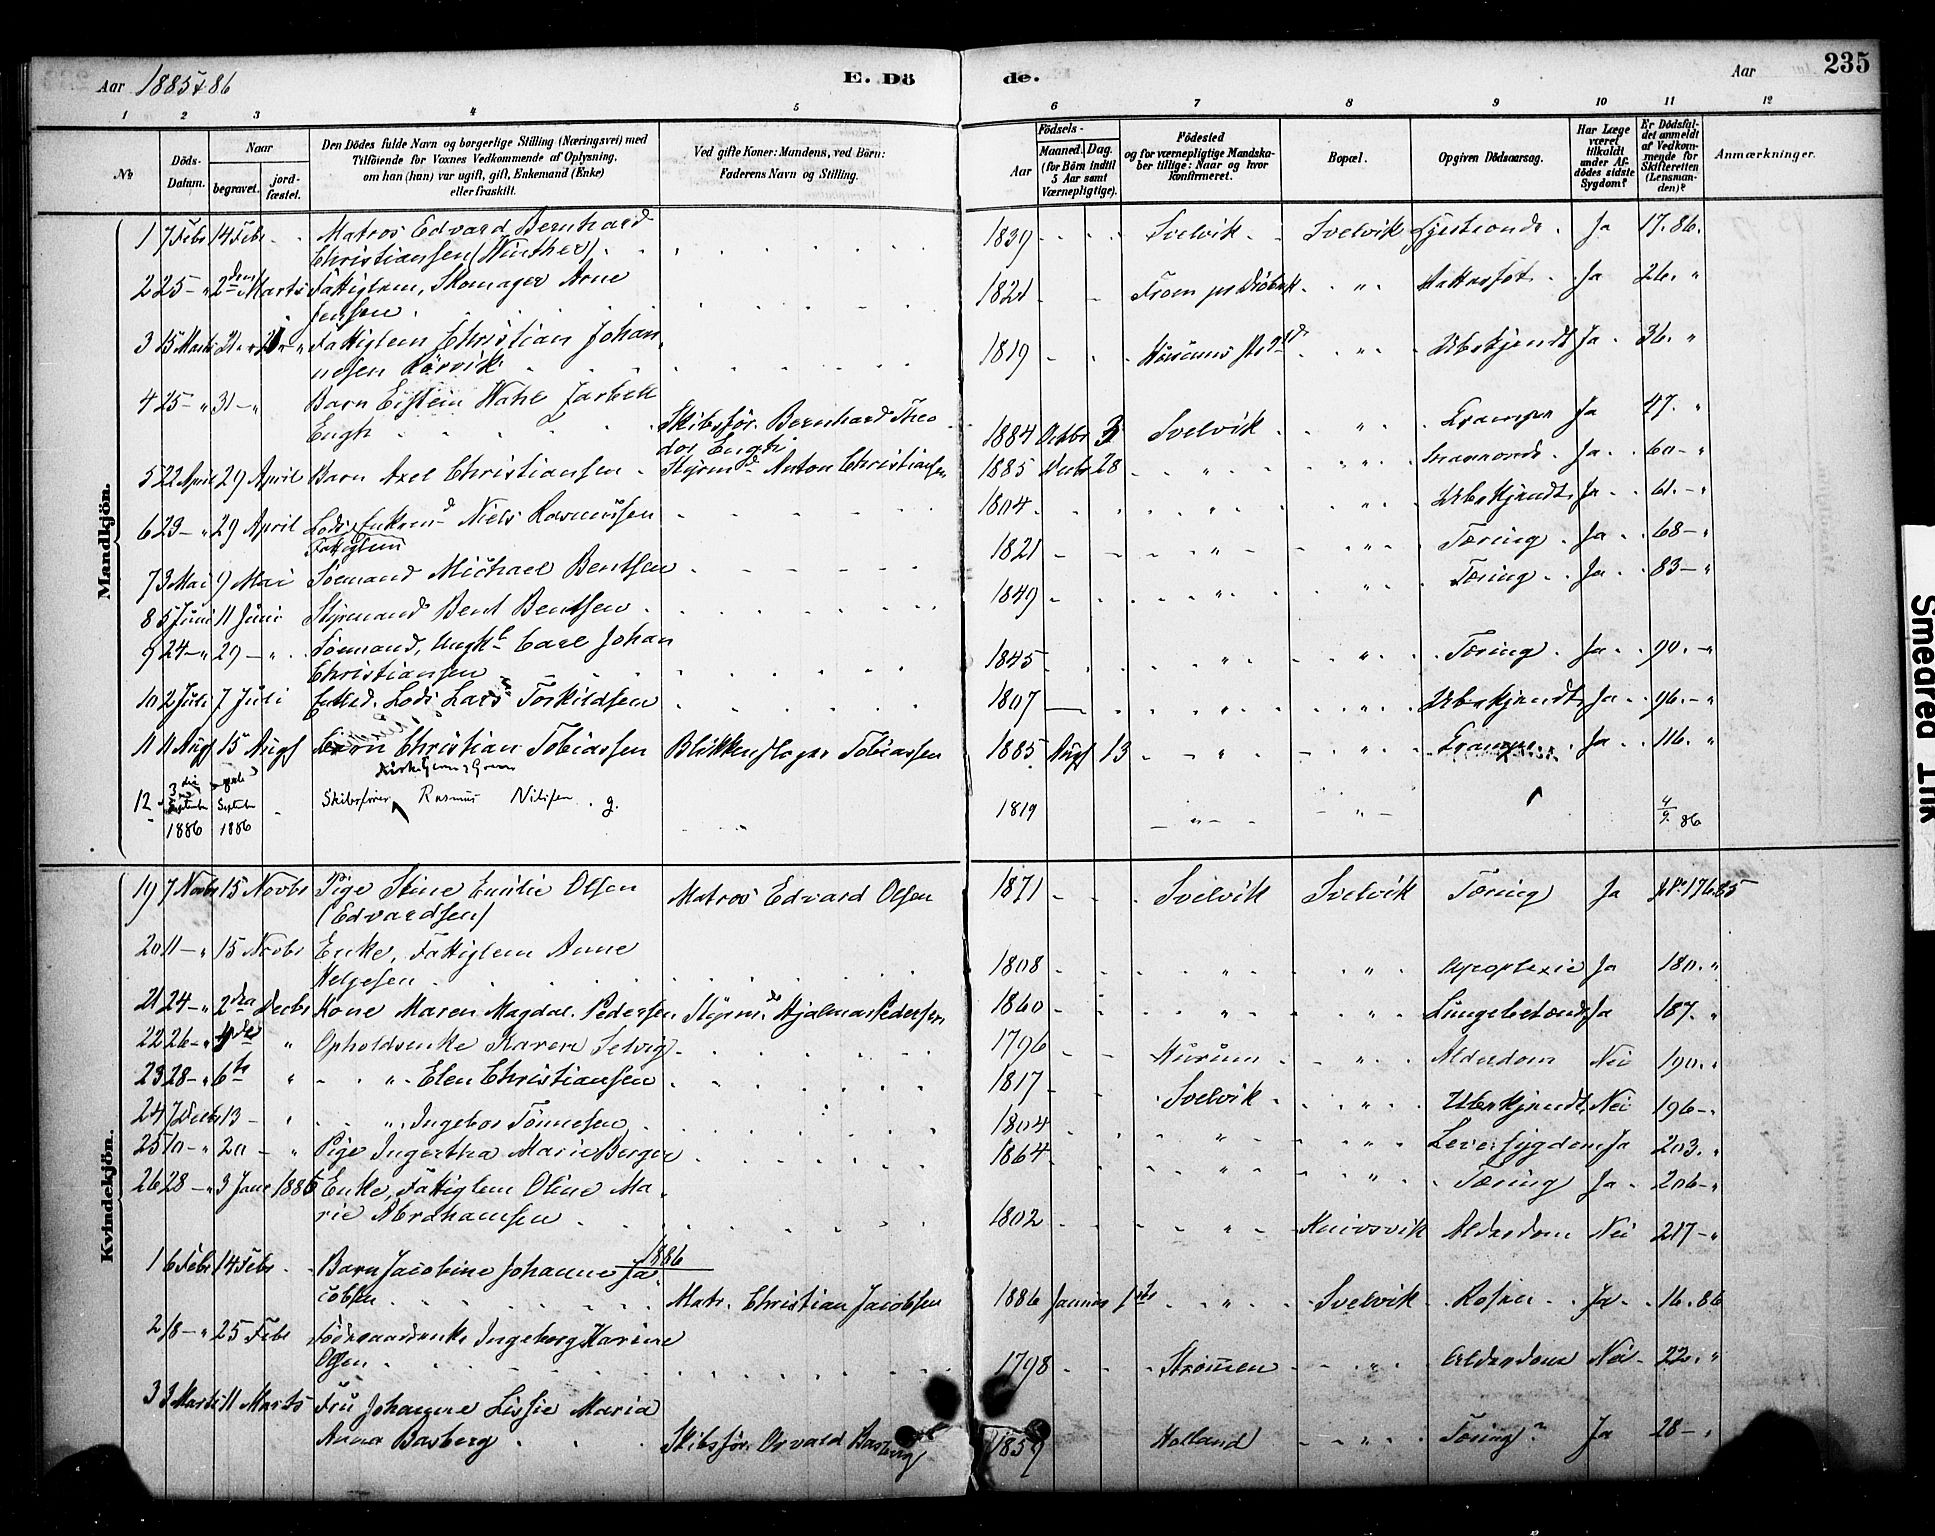 Aar 1885 & 86 E. Dö de. Aar 235
1 2 3 4 5 6 7 8 9 10 11 12
No Döds-Datum. Naar begravet. jordfæstet. Den Dödes fulde Navn og borgerlige Stilling (Næringsvei) med Tilföiende for Voxnes Vedkommende af Oplysning, om han (hun) var ugift, gift, Enkemand (Enke) eller fraskilt. Ved gifte Koner: Mandens, ved Börn: Faderens Navn og Stilling. Födsels- Aar Maaned. Dag. (for Börn indtil 5 Aar samt Værnepligtige). Födested og for værnepligtige Mandskaber tillige: Naar og hvor konfirmeret. Bopæl. Opgiven Dödsaarsag. Har Læge været tilkaldt under Afdödes sidste Sygdom? Er Dödsfaldet anmeldt af Vedkommende for Skifteretten (Lensmanden)? Anmærkninger.
Mandkjön.
1 7 Febr 14 Febr. Matros Edvard Bernhard 1839 Svelvik Svelvik Ja 17. 86.
Christiansen (Winther)
2 25 - " 2den Marts Fattiglem, Skomager Arne 1821 " Ja 26. "
Jensen
3 15 Marts 21 - " Fattiglem Christian Johan 1819 " Ubekjendt Ja 36. "
nesen Rörvik
4 25 - " 31 - " Barn Eistein Jarbek
Engh Skibsför. Bernhard Theo 1884 Octbr 3 Svelvik " Krampe Ja 47. "
dor Engh
5 22 April 29 April Barn Axel Christiansen Styrmd Anton Christiansen 1885 Decbr 28 " " Ja 60 - "
6 23 - " 29 April Lods, Enkemd Niels Rasmussen 1804 " " Ubekjendt Ja 61. - "
Fattiglem
7 3 Mai 9 Mai Sömand Michael Bentsen 1821 " " Tæring Ja 68 - "
8 5 Juni 11 Juni Styrmand Bent Bentsen 1849 " " Tæring Ja 83 - "
9 24 - " 29 - " Sömand, Ungkl Carl Johan 1845 " " Tæring Ja 90. - "
Christiansen
10 2 Juli 7 Juli Enked. Lods Lars Torkildsen 1807 " " Ubekjendt Ja 96. - "
11 11 Augs 15 Augs Barn Christian Tobiassen Blikkenslager Tobiassen 1885 Augs 13 " " Krampe Ja 116. "
12 3die September 1886 September 1886 Skibsfører Rasmus Nilsen g. 1819 " " 4/9 86
Kvindekjön.
19 7 Novbr 15 Novbr Pige Stine Emilie Olsen Matros Edvard Olsen 1871 Svelvik Svelvik Tæring Ja 176. 85
(Edvardsen)
20 11 - " 15 Novbr Enke, Fattiglem Anne
Helgesen 1808 " " Apoplexie Ja 180. "
21 24 - " 2den Decbr Kone Maren Magdal. Pedersen Styrmd. Hjalmar Pedersen 1860 " " Lungebetænd. Ja 187. "
22 26 - " 4de " Opholdsenke Karen Selvig 1796 Hurum " Alderdom Nei 190. "
23 28 - " 6te " " Elen Christiansen 1817 Svelvik " Ubekjendt Nei 196 - "
24 7 Decbr 13 - " " Ingebor Tönnesen 1804 " " Leversygdom Ja 203. "
25 10 - " 20 - " Pige Ingertha Marie Berger 1864 " " Tæring Ja 206 - "
26 28 - " 3 Janr 1886 Enke, Fattiglem Oline Ma
rie Abrahamsen 1802 " Knivsvik Alderdom Nei 217 - "
1886
1 6 Febr 14 Febr Barn Jacobine Johanne Ja
cobsen Matr. Christian Jacobsen 1886 Januar 1ste " Svelvik Rosen Ja 16. 86
2 18 - " 25 Febr Födsraadsenke Ingeborg Karine
Olsen 1798 Strömmen " Alderdom Nei 22. "
3 3 Marts 11 Marts Fru Johanne Lissie Maria
Anna Basberg Skibsför. Osvald Basberg 1859 Holland " Tæring? Ja 28 - "
Smeared Ink